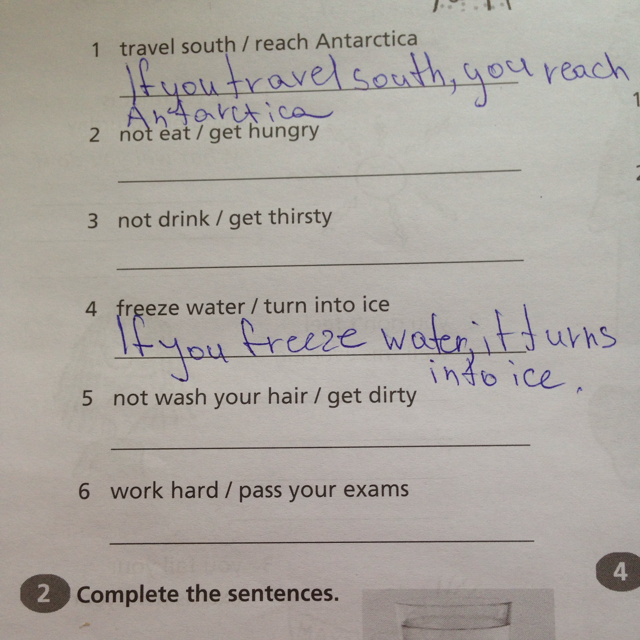 1 travel south / reach Antarctica
If you travel south, you reach
Antarctica
2 not eat / get hungry
3 not drink / get thirsty
4 freeze water / turn into ice
If you freeze water, it turns
into ice.
5 not wash your hair / get dirty
6 work hard / pass your exams
2 Complete the sentences.
4